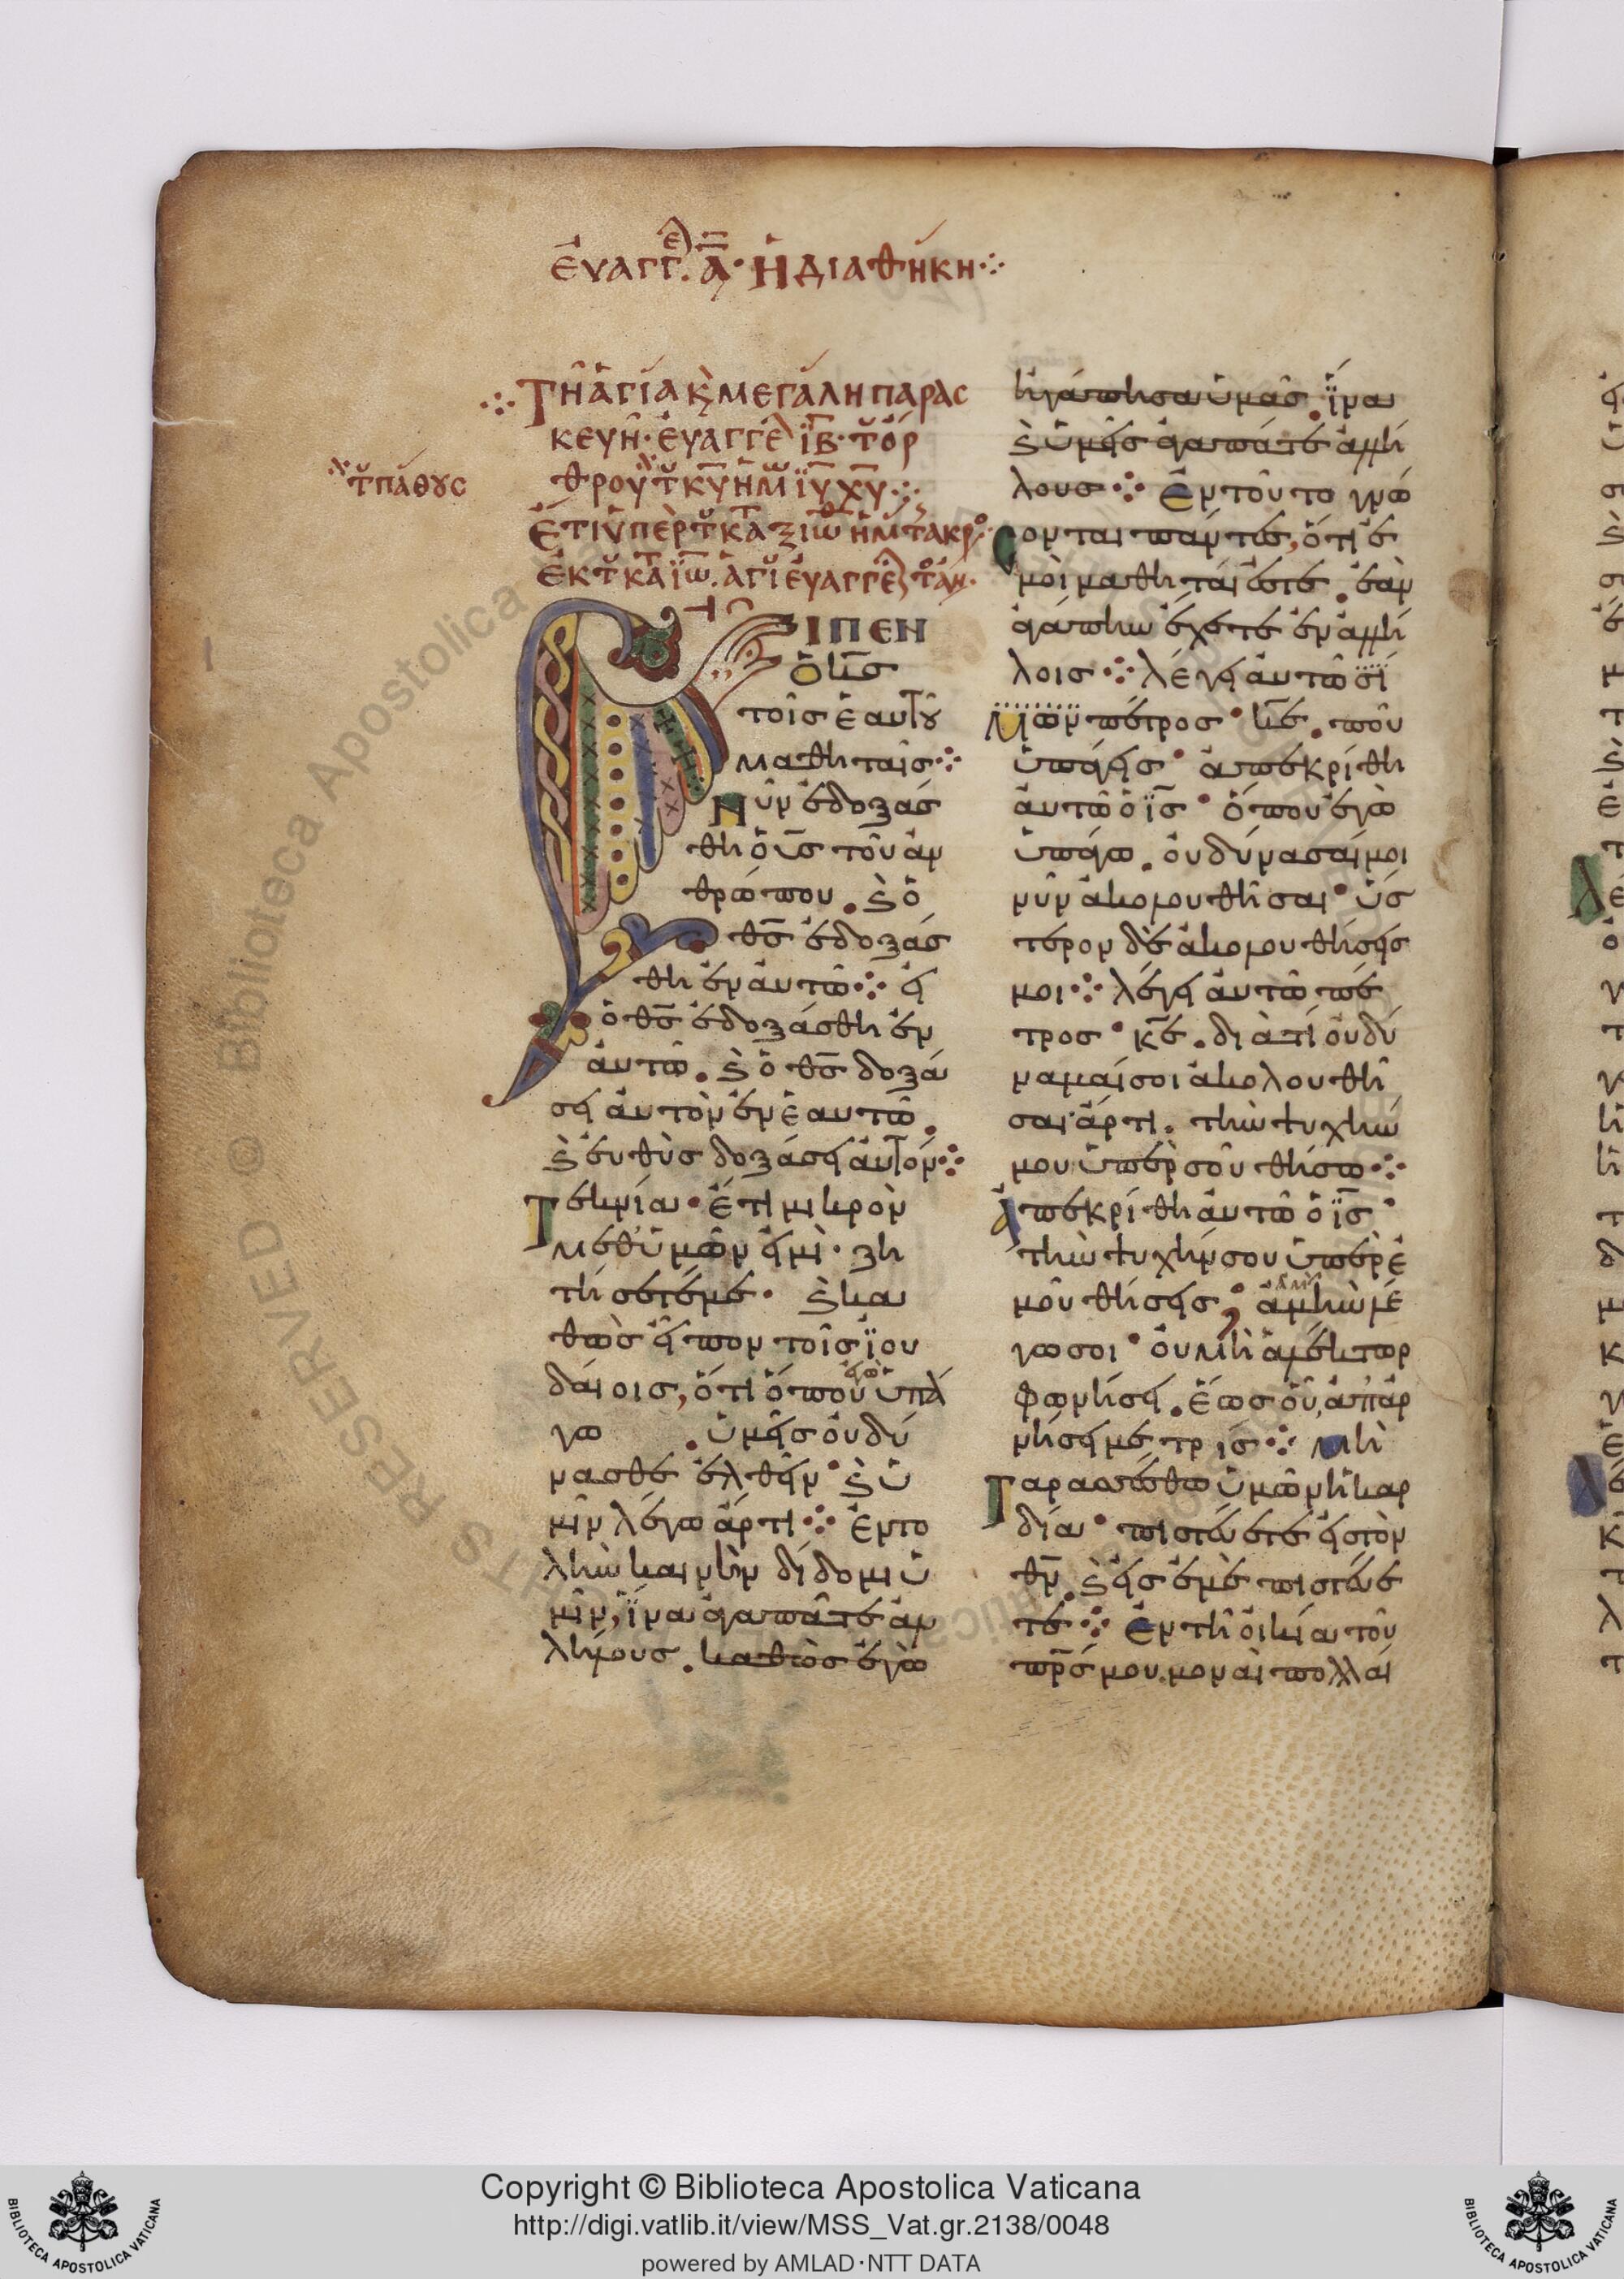 ΕΥΑΓΓΕ. Α̅· Ἡ ΔΙΑΘΉΚΗ⁘
⁘ΤΗ ἉΓΊΑ Κ ΜΕΓΆΛΗ ΠΑΡΑΣ
ΚΕΥΗ͂· ΕΥΑΓΓΕ ΙΒ· Τ ὌΡ
ΘΡΟΥ Τ Κ̅Υ̅ ἩΜ Ι̅Υ̅ Χ̅Υ̅⁘
Τ ΠΆΘΟΥΣ
ἜΤΙ ὙΠῈΡ Τ ΚΑΤΑΞΙΩΘ ἩΜ Τ ΑΚΡ
ἘΚ Τ ΚΑΤ ΙΩ. ἉΓΙ ΕΥΑΓΓΕ
ΕΙΠΕΝ
ὁ ι̅ς̅
τοῖς ἑαυτοῦ
μαθηταῖς⁘
Νῦν ἐδοξάς
θη ὁ υ̅ς̅ τοῦ ἀν
θρώπου. ϗ ὁ
θ̅ς̅ ἐδοξάς
θη ἐν αὐτῶ⁘ εἰ
ὁ θ̅ς̅ ἐδοξάσθη ἐν
αὐτῶ. ϗ ὁ θ̅ς̅ δοξά
σει αὐτὸν ἐν ἑαυτῶ.
ϗ εὐθὺς δοξάσει αὐτόν⁘
Τεκνία· ἔτι μικρὸν
μεθ' ὑμῶν εἰμὶ· ζη
τήσετέ με· ϗ κα
θὼς εἶπον τοῖς ἰου
δαίοις, ὅτι ὅπου ἐγὼ ὑπά
γω . ὑμεῖς οὐ δύ
νασθε ἐλθεῖν· ϗ ὑ
μῖν λέγω ἄρτι⁘ Ἐντο
λὴν καινὴν δίδομι ὑ
μῖν, ἵνα ἀγαπᾶτε ἀλ
λήλους. καθὼς ἐγὼ
ἠγάπησα ὑμᾶς. ἵνα
ϗ ὑμεῖς ἀγαπάτε ἀλλή
λους⁘ Ἐν τοῦτο γνώ
σονται πάντες, ὅτι ἐ
μοὶ μαθηταί ἐστε. ἐὰν
ἀγάπην ἔχετε ἐν ἀλλή
λοις⁘ λέγει αὐτῶ σί
Μων πέτρος· κ̅ε̅. ποῦ
ὑπάγεις· ἀπεκρίθη
αὐτῶ ὁ ι̅ς̅· ὅπου ἐγὼ
ὑπάγω. οὐ δύνασαί μοι
νῦν ἀκολουθῆσαι· ὕσ
τερον δὲ ἀκολουθήσεις
μοι⁘ λέγει αὐτῶ πέ
τρος· κ̅ε̅. διὰ τί οὐ δύ
ναμαί σοι ἀκολουθῆ
σαι ἄρτι. τὴν ψυχήν
μου ὑπὲρ σοῦ θήσω⁘
Ἀπεκρίθη αὐτῶ ὁ ι̅ς̅·
τὴν ψυχήν σου ὑπὲρ ἐ
μοῦ θήσεις; ἀμὴν ἀμὴν λέ
γω σοι· οὐ μὴ ἀλέκτωρ
φωνήσει. ἕως οὗ, ἀπαρ
νήσει με τρίς⁘ Μὴ
Ταρασσέσθω ὑμῶν ἡ καρ
δία· πιστεύετε εἰς τὸν
θ̅ν̅. ϗ εἰς ἐμὲ πιστεύε
τε⁘ Ἐν τῆ οἰκία τοῦ
π̅ρ̅ς̅ μου, μοναὶ πολλαί
Copyright © Biblioteca Apostolica Vaticana
http://digi.vatlib.it/view/MSS_Vat.gr.2138/0048
powered by AMLAD·NTT DATA
BIBLIOTECA APOSTOLICA VATICANA
BIBLIOTECA APOSTOLICA VATICANA